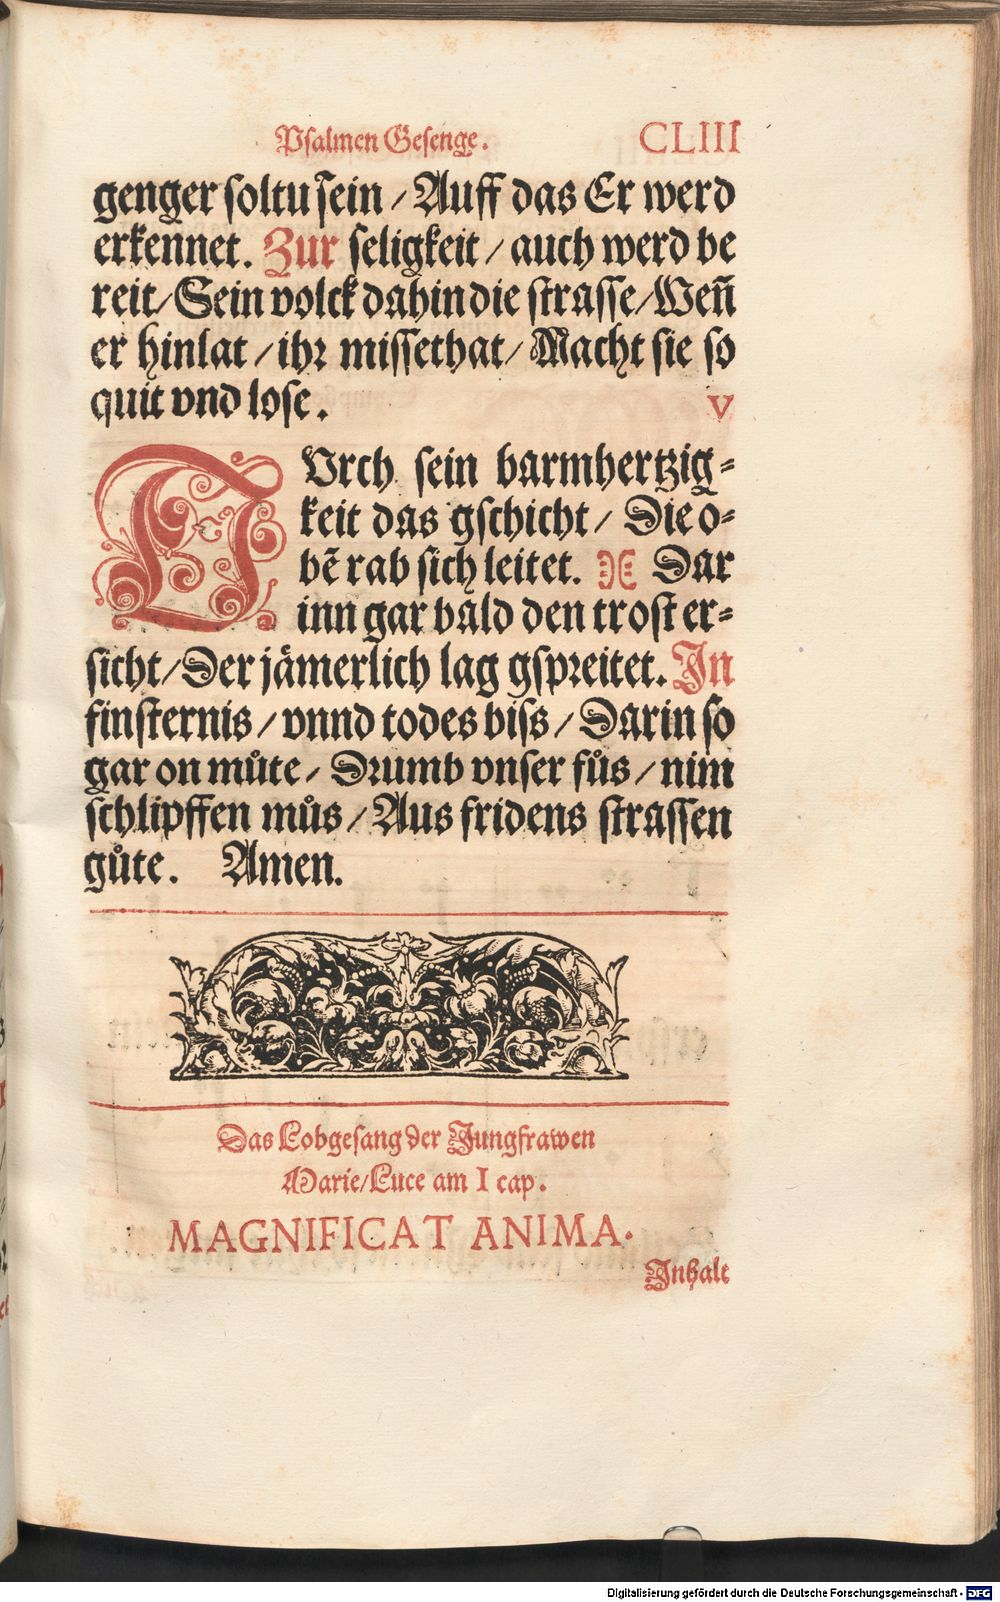 Psalmen Gesenge. CLIII
genger soltu sein / Auff das Er werd
erkennet. Zur seligkeit / auch werd be
reit / Sein volck dahin die strasse / Weñ
er hinlat / ihr missethat / Macht sie so
quit vnd lose. V
DVrch sein barmhertzig-
keit das gschicht / Die o-
bẽ rab sich leitet. Dar
inn gar bald den trost er-
sicht / Der jämerlich lag gspreitet. In
finsternis / vnnd todes biss / Darin so
gar on můte / Drumb vnser fůs / nim
schlipffen můs / Aus fridens strassen
gůte. Amen.
Das Lobgesang der Jungfrawen
Marie / Luce am I cap.
MAGNIFICAT ANIMA.
Inhalt
Digitalisierung gefördert durch die Deutsche Forschungsgemeinschaft - DFG